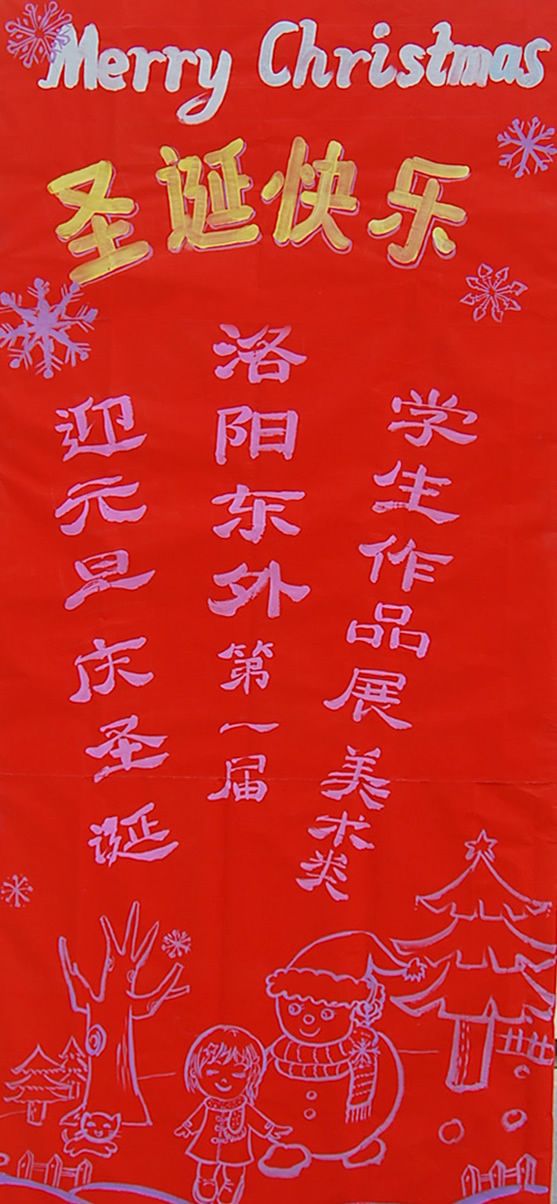 Merry Christmas
圣诞快乐
迎元旦庆圣诞
洛阳东外第一届
学生作品展美术类